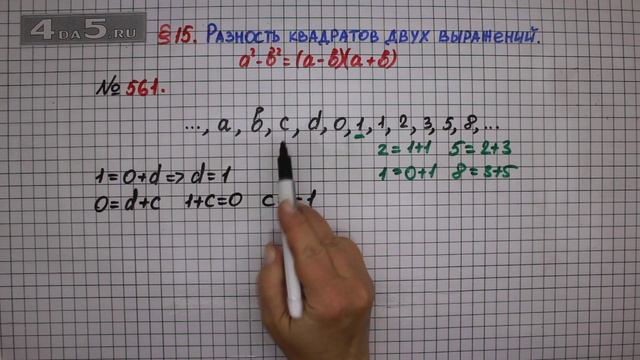 4DA5.RU
§15. Разность квадратов двух выражений.
a²-b²=(a-b)(a+b)
№561.
..., a, b, c, d, 0, 1, 1, 2, 3, 5, 8, ...
2=1+1 5=2+3
1=0+1 8=3+5
1=0+d=>d=1
0=d+c 1+c=0 c -1